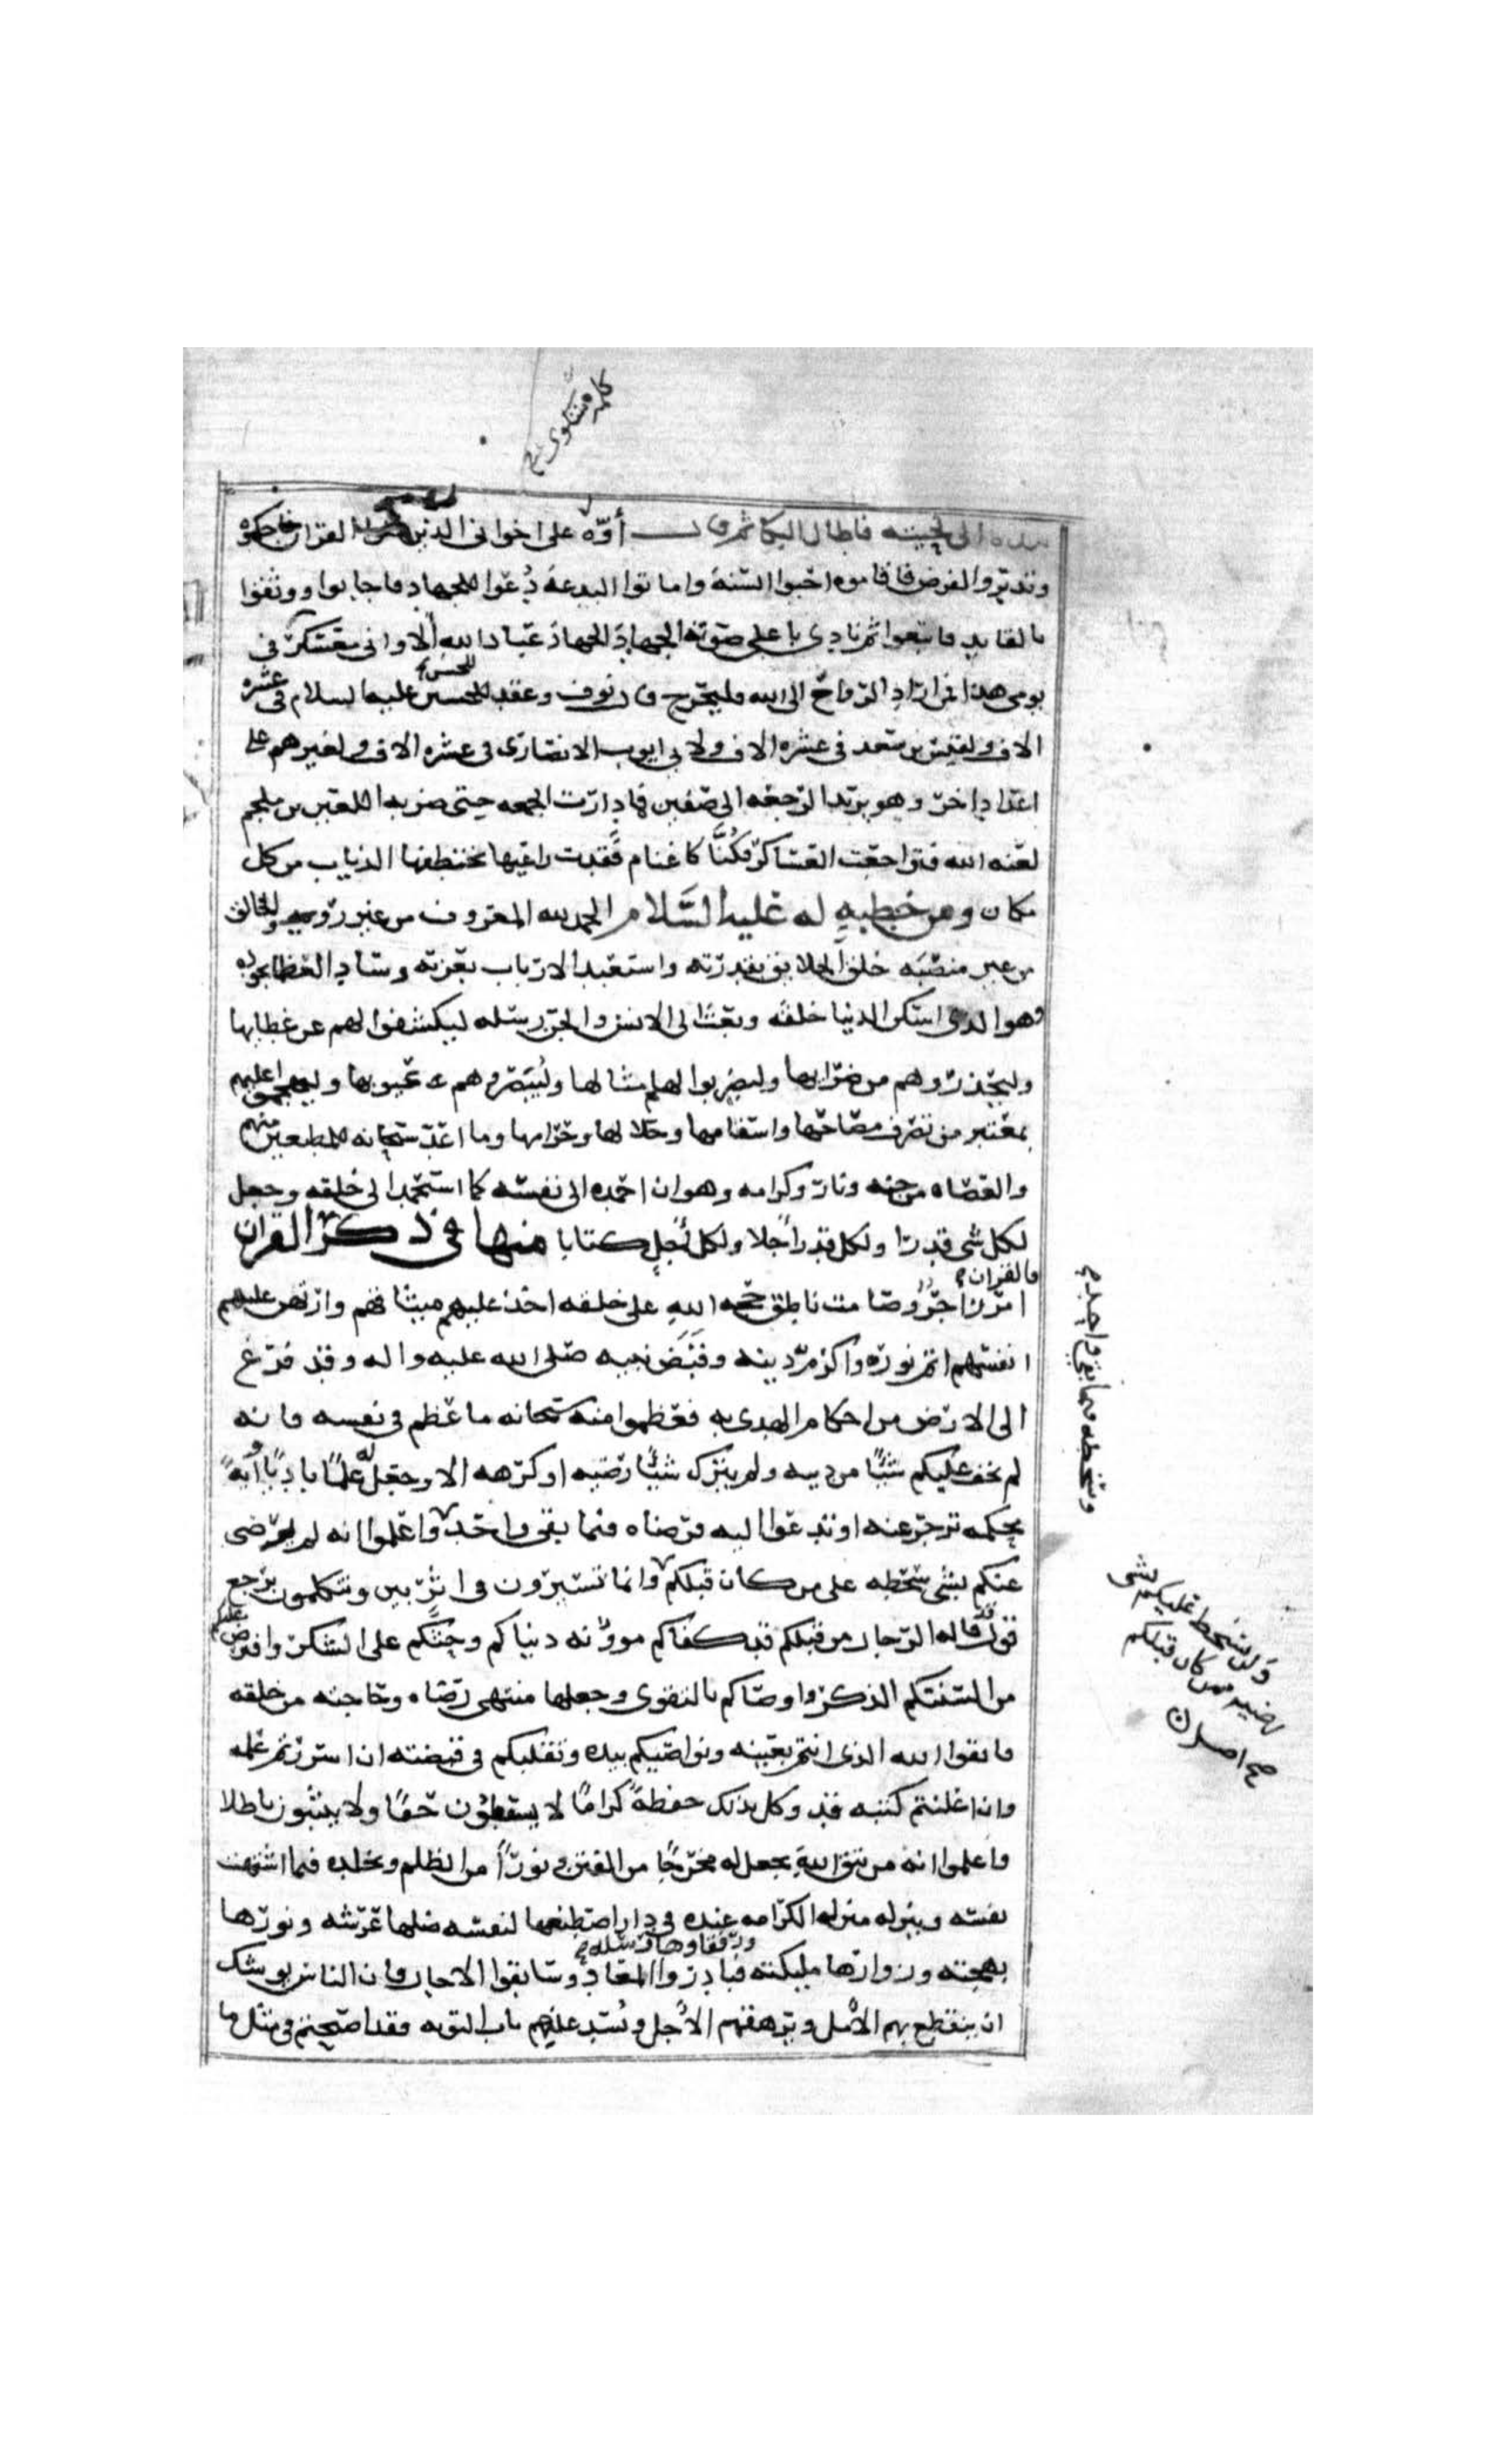 كلمة شكوى صح
بيده الى لحيته فاطال البكا ثم قال أوّه على اخوانى الذين القران فاحكموه
وتدبروا الفرض فاقاموه احيوا السّنة واماتوا البدعة دُعوا للجهاد فاجابوا ووثقوا
بالقايد فاتبعوا ثم نادى باعلى صوته الجهادَ الجهادَ عباد الله ألا وانى معسكر فى
يومى هذا فمن اراد الرّواحَ الى الله فليخرج قال نوف وعقد للحسين عليه السلام فى عشره
للحسن
الاف ولقيس بن سعد فى عشره الاف ولابى ايوب الانصارى فى عشره الاف ولغيرهم على
اعداد اخر وهو يريد الرّجعه الى صفين فما دارت الجمعه حتى ضربه اللعين بن ملجم
لعنه الله فتراجعت العساكر فكُنَّا كاغنام فَقدت راعيها تختطفها الذياب من كل
مكان ومن خطبةٍ له عليه السَّلام الحمد لله المعروف من غير رؤيه والخالق
من غير منصَبَه خلق الخلايق بقدرته واستعبد الارباب بعزته وساد العظما بجوده
وهو الذى اسكن الدنيا خلقه وبعث الى الانس والجن رسله ليكشفوا لهم عن غطايها
وليحذروهم من ضرايها وليضربوا لهم امثالها وليُبَصّروهم عيوبها وليهجموا عليهم
بمعتبر من تصرف مصاحّها واسقامها وحلالها وحرامها وما اعدّ سبحانه للمطيعين منهم
والعصاه من جنه ونار وكرامه وهوان احمده الى نفسه كما استحمد الى خلقه وجعل
لكل شى قدرا ولكل قدر أجلا ولكل أجل كتابا منها فى ذكر القران
فالقران
امر زاجر وصامت ناطق حجه الله على خلقه اخذ عليهم ميثاقهم وارتهن عليهم
انفسهم اتم نوره واكرم دينه وقَبَضَ نبيه صلى الله عليه واله وقد فرغ
الى الارض من احكام الهدى به فعظموا منه سبحانه ما عظم من نفسه فانه
لم يخف عليكم شيًا من دينه ولم يترك شيئًا رضيه او كرهه الا وجعل له علمًا باديًا وآيةً
محكمه تزجر عنه او تدعوا اليه فرضاه فيما بقى واحد واعلموا انه لن يرضى
وسخطه فيما بقى واحد صح
عنكم بشى سخطه على من كان قبلكم وانما تسيرون فى اثرٍ بين وتتكلمون برجع
ولن يسخط عليكم بشى
رضيه ممن كان قبلكم
صح اصل
قول قد قاله الرّجال من قبلكم قد كفاكم موونه دنياكم وحثكم على الشكر وافترض عليكم
من السنتكم الذكر واوصاكم بالتقوى وجعلها منتهى رضاه وحاجته من خلقه
فاتقوا الله الذى انتم بعينه ونواصيكم بيده وتقلبكم فى قبضته ان اسررتم علمه
وان اعلنتم كتبه قد وكل بذلك حفظةً كرامًا لا يسقطون حقًا ولا يثبتون باطلا
واعلموا انه من يتق الله يجعل له مخرجًا من الفتن ونورًا من الظلم ويخلده فيما اشتهت
نفسه وينزله منزله الكرامه عنده فى دار اصطنعها لنفسه ظلها عرشه ونورها
ورفقاوها رسله
بهجته وزوارها مليكته فبادروا المعاد وسابقوا الاجال فان الناس يوشك
ان ينقطع بهم الأمل ويرهقهم الأجل ويُسَد عليهم باب التوبه فقد اصبحتم فى مثل ما